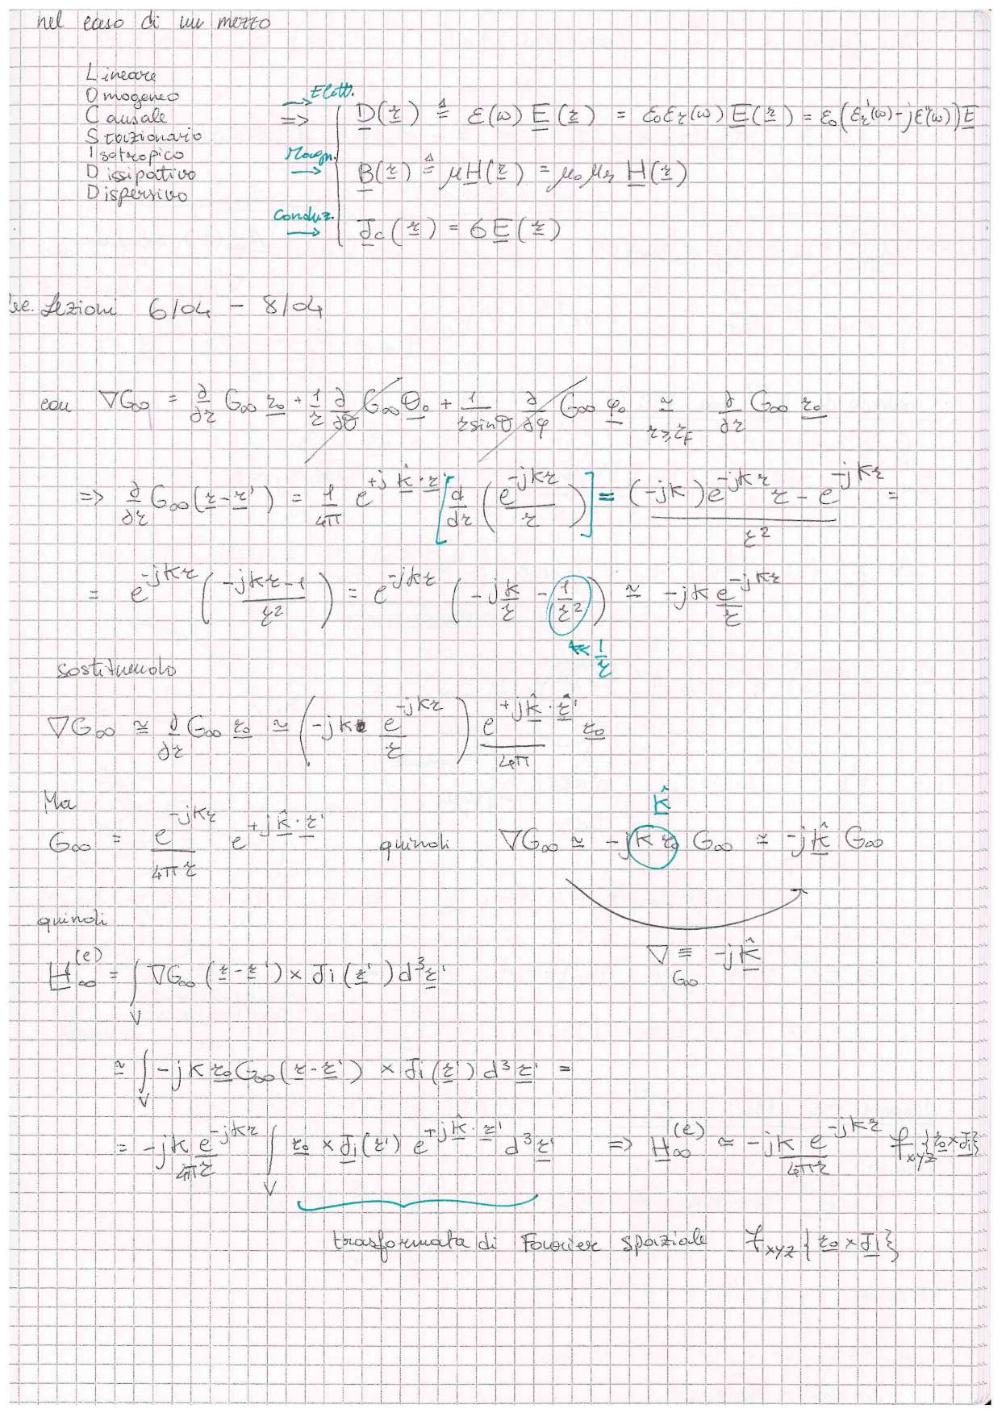 nel caso di un mezzo
Lineare
Omogeneo
Causale
Stazionario
Isotropico
Dissipativo
Dispersivo
Elett. → => D(r) ≜ ε(ω) E(r) = ε₀εr(ω) E(r) = ε₀(εr'(ω)-jε''(ω))E
Magn. → B(r) ≜ μH(r) = μ₀μr H(r)
Conduz. → Jc(r) = σE(r)
Lezioni 6/04 - 8/04
con ∇G∞ = ∂/∂r G∞ r₀ + 1/r ∂/∂θ G∞ θ₀ + 1/(r sinθ) ∂/∂φ G∞ φ₀ ≃ (r≥rF) ∂/∂r G∞ r₀
=> ∂/∂r G∞(r-r') = 1/4π e^{+j k̂·r} [d/dr (e^{-jkr}/r)] = ((-jk)e^{-jkr} r - e^{-jkr})/r² =
= e^{-jkr} ((-jkr-1)/r²) = e^{-jkr} (-jk/r - 1/r²) ≃ -jk e^{-jkr}/r
<< 1/r
sostituendo
∇G∞ ≃ ∂/∂r G∞ r₀ ≃ (-jk e^{-jkr}/r) e^{+jk̂·r̂'}/4π r₀
Ma
k̂
G∞ = e^{-jkr}/4πr e^{+jk̂·r'} quindi ∇G∞ ≃ -jk r₀ G∞ ≃ -jk̂ G∞
quindi
∇ ≡ -jk̂
G∞
H∞^(e) = ∫V ∇G∞(r-r') × Ji(r') d³r'
≃ ∫V -jk r₀ G∞(r-r') × Ji(r') d³r' =
= -jk e^{-jkr}/4πr ∫V r₀ × Ji(r') e^{+jk̂·r'} d³r' => H∞^(e) ≃ -jk e^{-jkr}/4πr Fxyz{r₀×Ji}
trasformata di Fourier spaziale Fxyz{r₀×Ji}